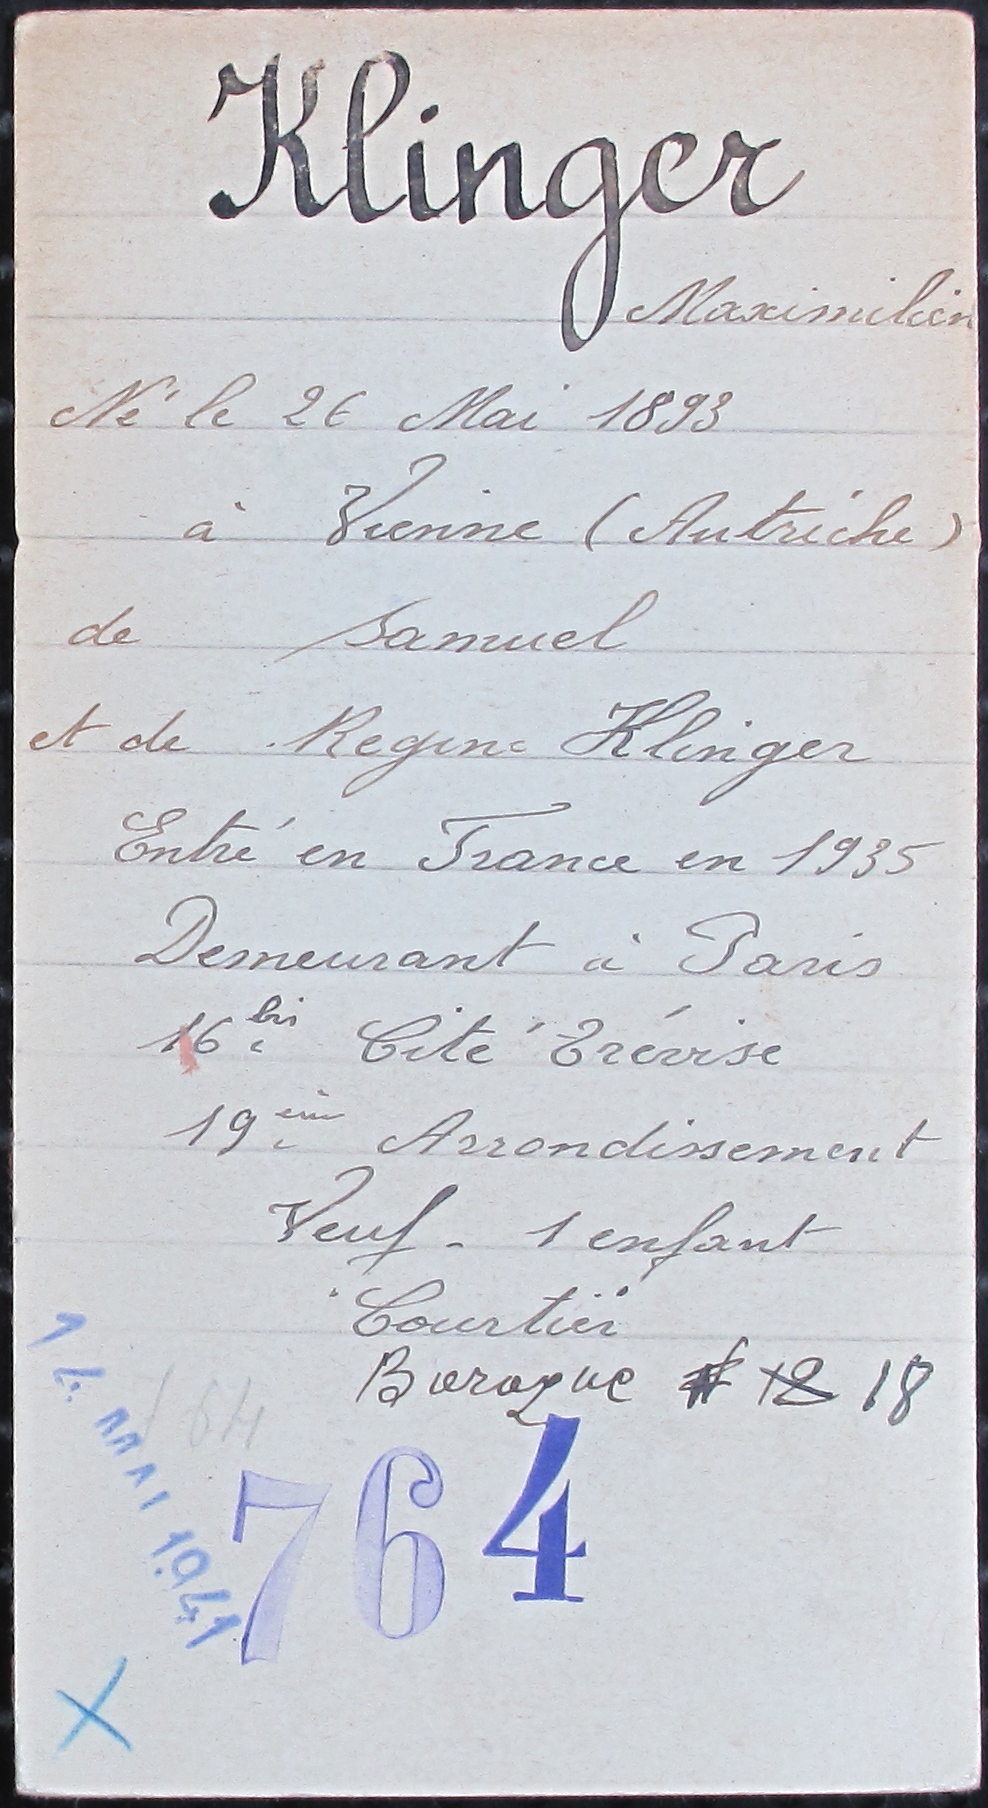 Klinger
Maximilien
Né le 26 Mai 1893
à Vienne (Autriche)
de Samuel
et de Regine Klinger
Entré en France en 1935
Demeurant à Paris
16 bis Cité Trévise
19 em Arrondissement
Veuf - 1 enfant
Courtier
Baraque 12 18
164
14 MAI 1941
764
X